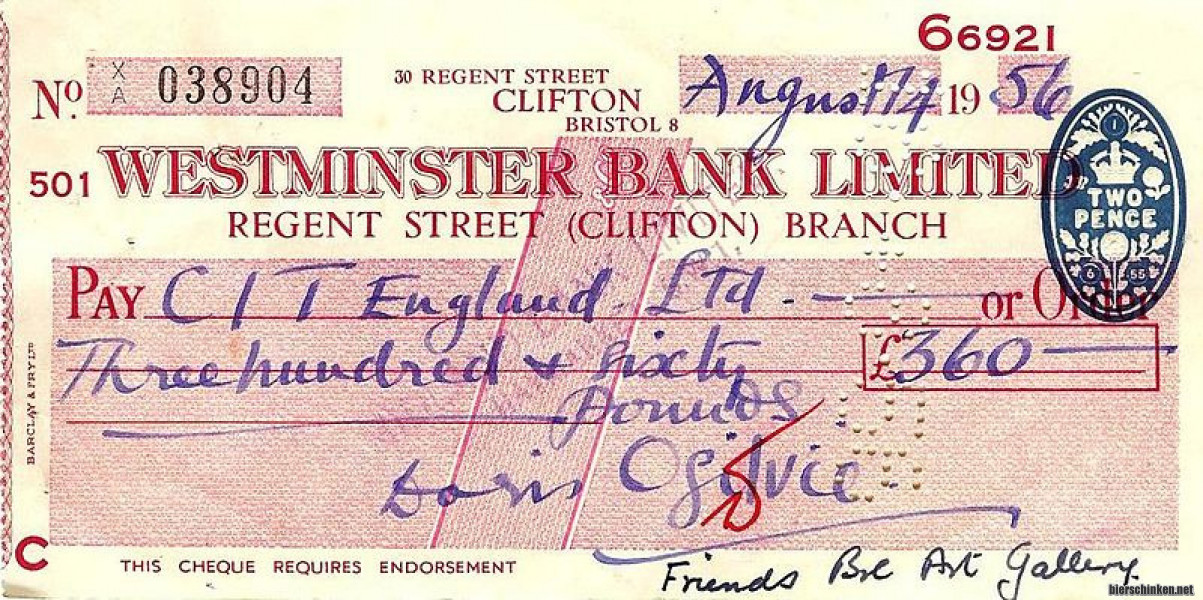 66921
No. X/A 038904
30 REGENT STREET
CLIFTON
BRISTOL 8
August 14 1956
501 WESTMINSTER BANK LIMITED
REGENT STREET (CLIFTON) BRANCH
TWO
PENCE
6 55
PAY C I T England Ltd. or Order
Three hundred & sixty £360
Pounds
Doris Ogilvie
BARCLAY & FRY LTD
C THIS CHEQUE REQUIRES ENDORSEMENT
Friends Art Gallery
bierschinken.net